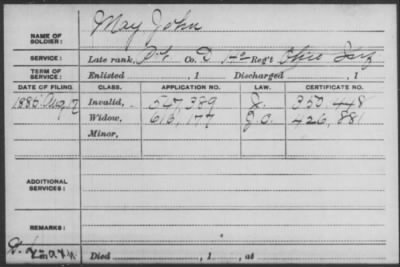 NAME OF SOLDIER: May John
SERVICE: Late rank, Pt. Co. D, Reg't Ohio Inf
TERM OF SERVICE: Enlisted , 1 Discharged , 1
DATE OF FILING. CLASS. APPLICATION NO. LAW. CERTIFICATE NO.
1885 Aug 17 Invalid, 547,389 J. 350,448
Widow, 616,177 J.O. 426,881
Minor,
ADDITIONAL SERVICES:
REMARKS:
Died , 1 , at